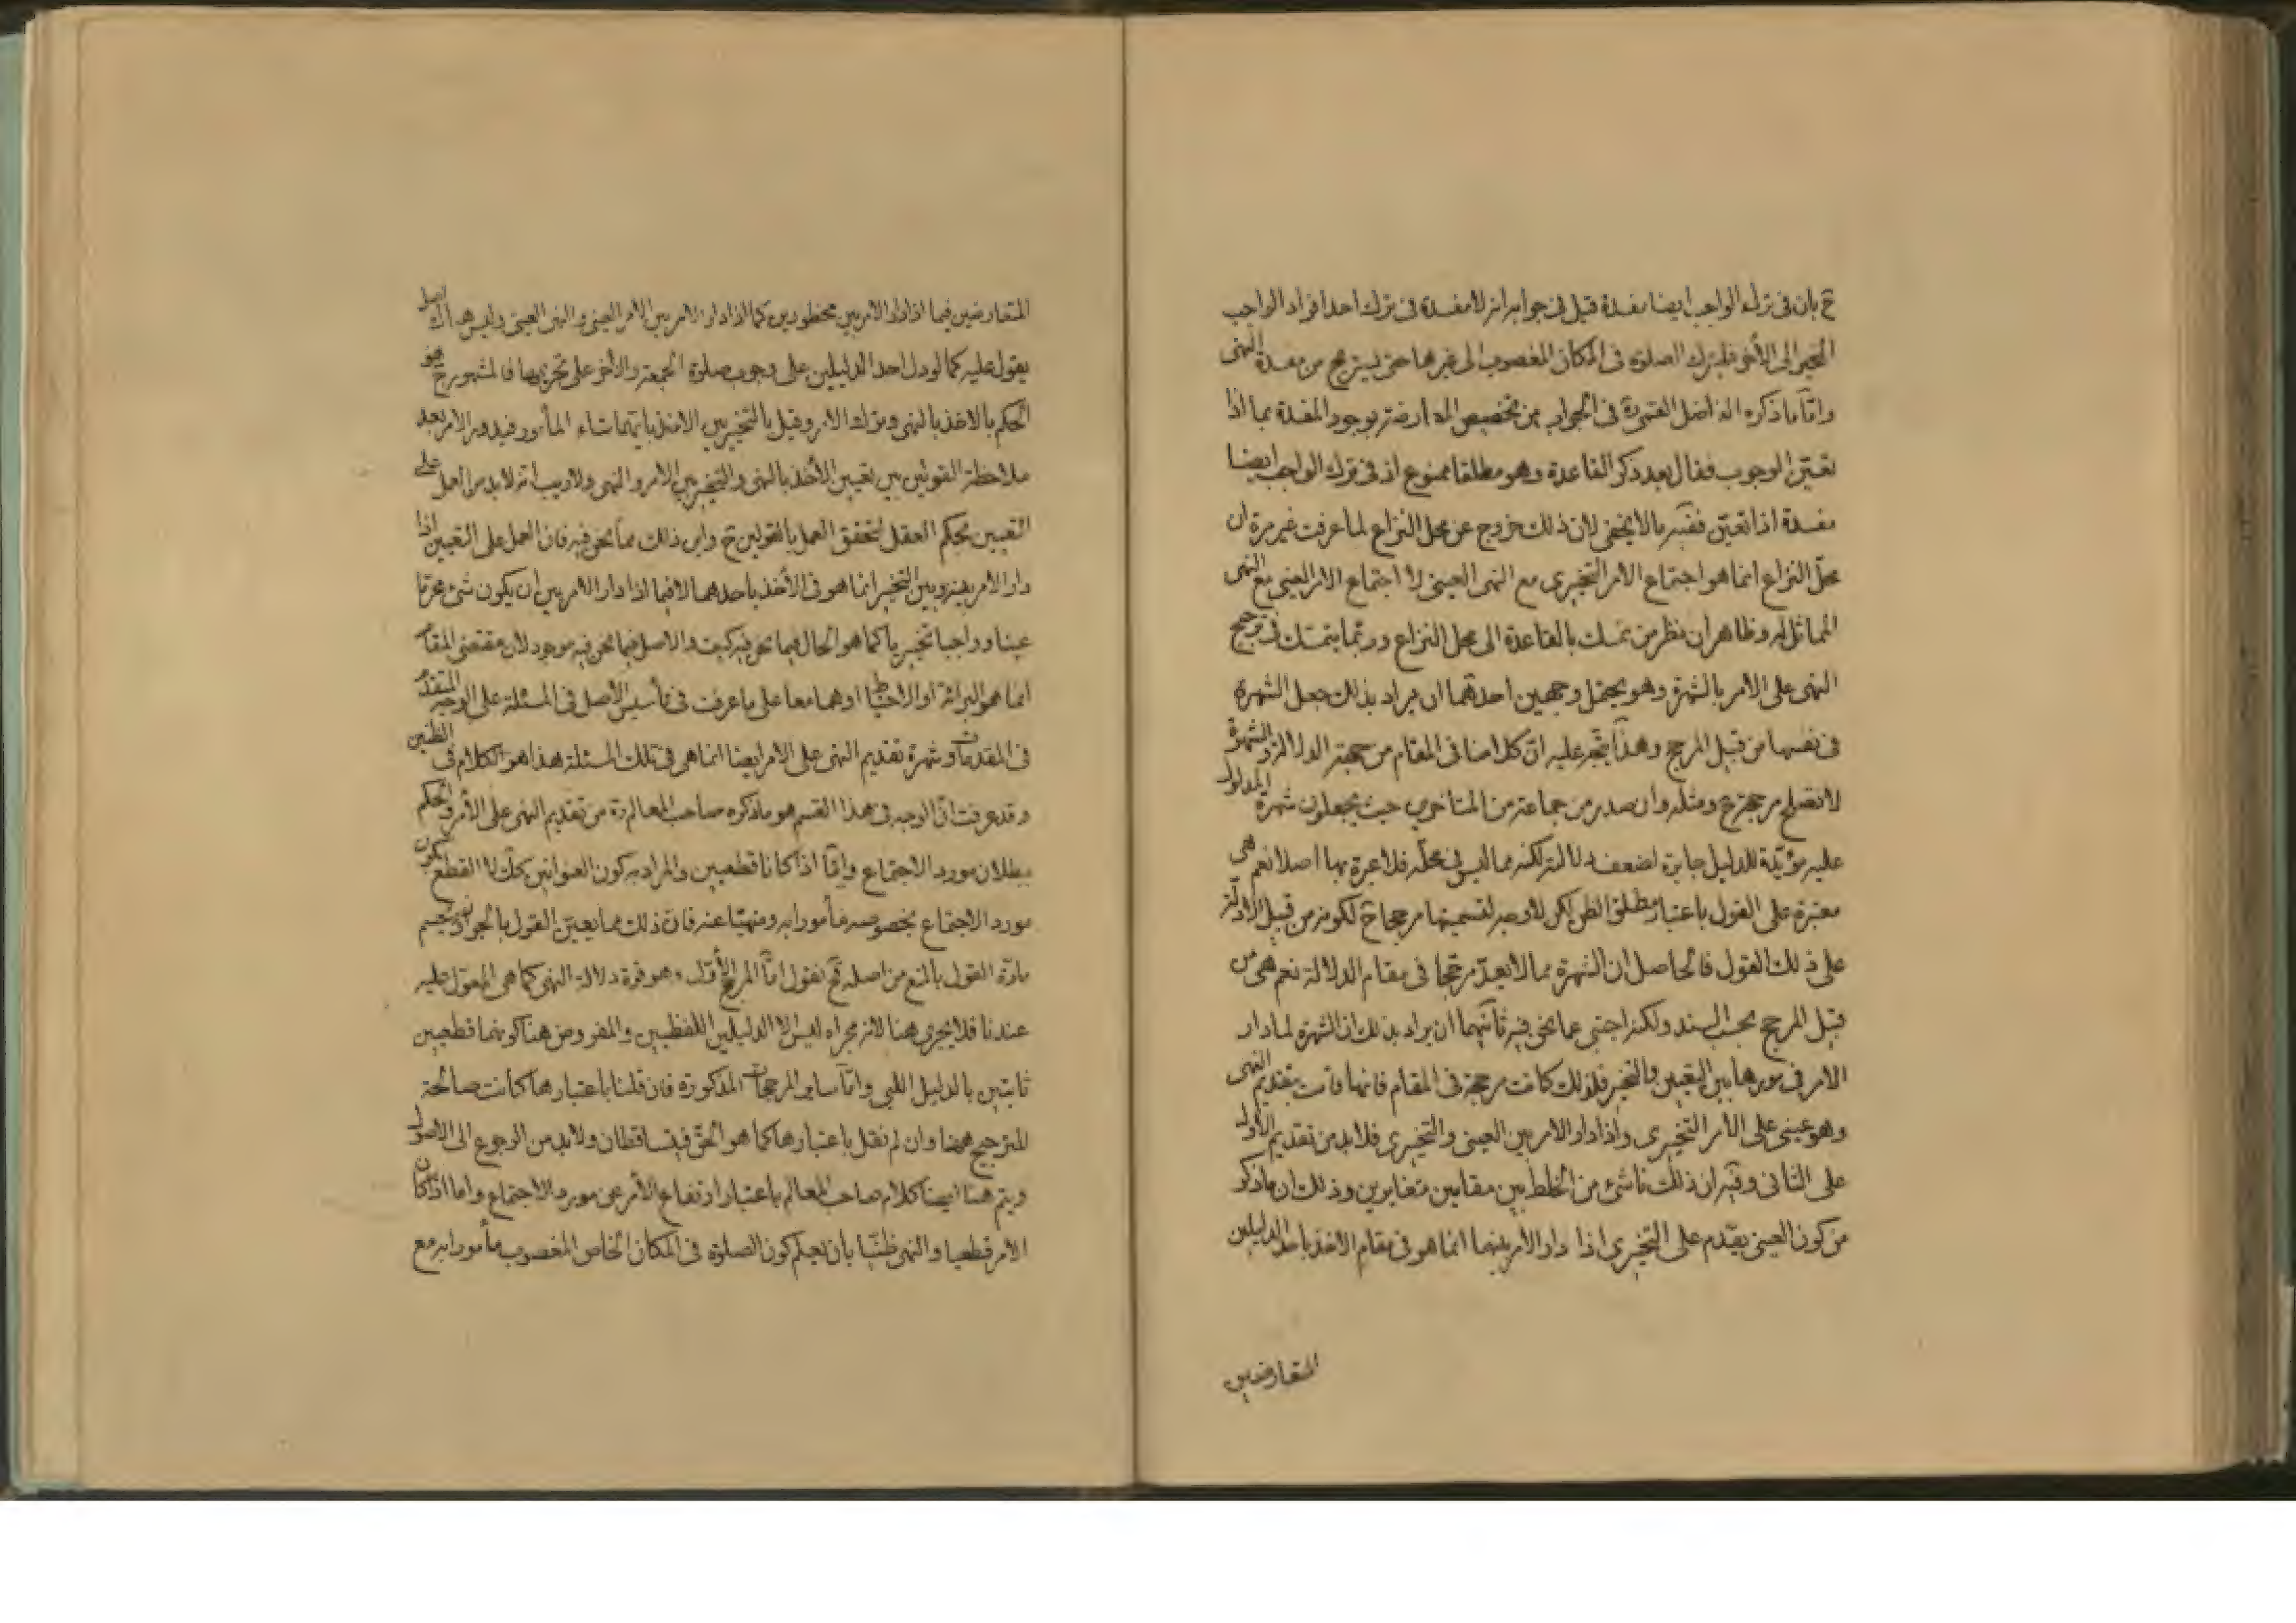 ح بان في ترك الواجب ايضا مفسدة قيل في جوابه انه لا مفسدة في ترك احد افراد الواجب
المخير الى الأخر فليترك الصلوة في المكان المغصوب الى غيرها حتى يستريح من مفسدة النهى
وامّا ما ذكره الفاضل القمى ره في الجواب من تخصيص المعارضة بوجود المفسدة بما اذا
تعيّن الوجوب فقال بعد ذكر القاعدة وهو مطلقا ممنوع اذ في ترك الواجب ايضا
مفسدة اذا تعيّن ففيه ما لا يخفى لان ذلك خروج عن محل النزاع لما عرفت غير مرة ان
محلّ النزاع انما هو اجتماع الامر التخييرى مع النهى العينى لا اجتماع الامر العينى مع النهى
المماثل له وظاهر ان نظر من تمسك بالقاعدة الى محل النزاع وربّما يتمسّك في ترجيح
النهى على الامر بالشهرة وهو يحتمل وجهين احدهما ان يراد بذلك جعل الشهرة
في نفسها من قبيل المرجح وهذا يتّجه عليه انّ كلامنا في المقام من جهة الدلالة والشهرة
لا تصلح مرجحة ح ومثله وان صدر من جماعة من المتأخرين حيث يجعلون شهرة المدلول
عليه مؤيّدة للدليل جابرة لضعف دلالته لكنه مما ليس في محلّه فلا عبرة بها اصلا نعم هى
معتبرة على القول باعتبار مطلق الظن لكن لا وجه لتسميتها مرجحا ح لكونه من قبيل الادلّة
على ذلك القول فالحاصل ان الشهرة مما لا يعدّ مرجّحا في مقام الدلالة نعم هى من
قبيل المرجح بحسب السند ولكنه اجنبى عما نحن فيه ثانيهما ان يراد بذلك ان الشهرة لما دار
الامر في موردها بين التعيين والتخيير فلذلك كانت مرجحة في المقام فانها قامت بتقديم النهى
وهو عينى على الأمر التخييرى واذا دار الامر بين العينى والتخييرى فلا بد من تقديم الأول
على الثانى وفيه ان ذلك ناشئ من الخلط بين مقامين متغايرين وذلك ان ما ذكر
من كون العينى يقدّم على التخييرى اذا دار الأمر بينهما انما هو في مقام الاخذ باحد الدليلين
المتعارضين
المتعارضين فيما اذا دار الامر بين محظورين كما اذا دار الامر بين الامر العينى والنهى العينى وليس هناك اصل
يعوّل عليه كما لو دل احد الدليلين على وجوب صلوة الجمعة والأخر على تحريمها فالمشهور ح هو
الحكم بالاخذ بالنهى وترك الامر وقيل بالتخيير بين الاخذ بايّهما شاء المأمور فيدور الامر بعد
ملاحظة القولين بين تعيين الأخذ بالنهى والتخيير بين الامر والنهى ولا ريب انه لا بد من العمل على
التعيين بحكم العقل لتحقق العمل بالقولين ح واين ذلك مما نحن فيه فان العمل على التعيين اذا
دار الامر بينه وبين التخيير انما هو في الأخذ باحدهما لا فيما اذا دار الامر بين ان يكون شئ محرّما
عينا وواجبا تخييريا كما هو الحال فيما نحن فيه كيف والاصل فيما نحن فيه موجود لان مقتضى المقام
انما هو البرائة او الاحتياط او هما معا على ما عرفت في تأسيس الأصل في المسئلة على الوجه المتقدّم
في المقدمات وشهرة تقديم النهى على الامر ايضا انما هى في تلك المسئلة هذا هو الكلام في الظنين
وقد عرفت انّ الوجه في هذا القسم هو ما ذكره صاحب المعالم ره من تقديم النهى على الأمر والحكم
ببطلان مورد الاجتماع وامّا اذا كانا قطعيين والمراد به كون العنوانين كك لا القطع بكون
مورد الاجتماع بخصوصه مأمورا به ومنهيّا عنه فان ذلك مما يعيّن القول بالجواز ويحسم
مادّة القول بالمنع من اصله ثم نقول امّا المرجح الأوّل وهو قوة دلالة النهى كما هى المعوّل عليه
عندنا فلا يجرى هنا لانه مجراه ليس الا الدليلين اللفظيين والمفروض هنا كونهما قطعيين
ثابتين بالدليل اللبى وامّا ساير المرجحات المذكورة فان قلنا باعتبارها كانت صالحة
للترجيح هنا وان لم نقل باعتبارها كما هو الحقّ فيتساقطان ولا بد من الرجوع الى الاصول
ويتم هنا ايضا كلام صاحب المعالم باعتبار ارتفاع الأمر عن مورد الاجتماع واما اذا كان
الامر قطعيا والنهى ظنّيا بان يعلم كون الصلوة في المكان الخاص المغصوب مأمورا به مع